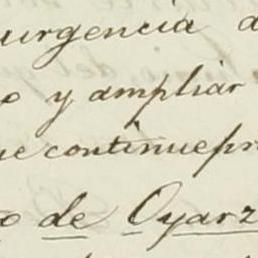 urgencia a
o y ampliar
ue continuepr
o de Oyarz